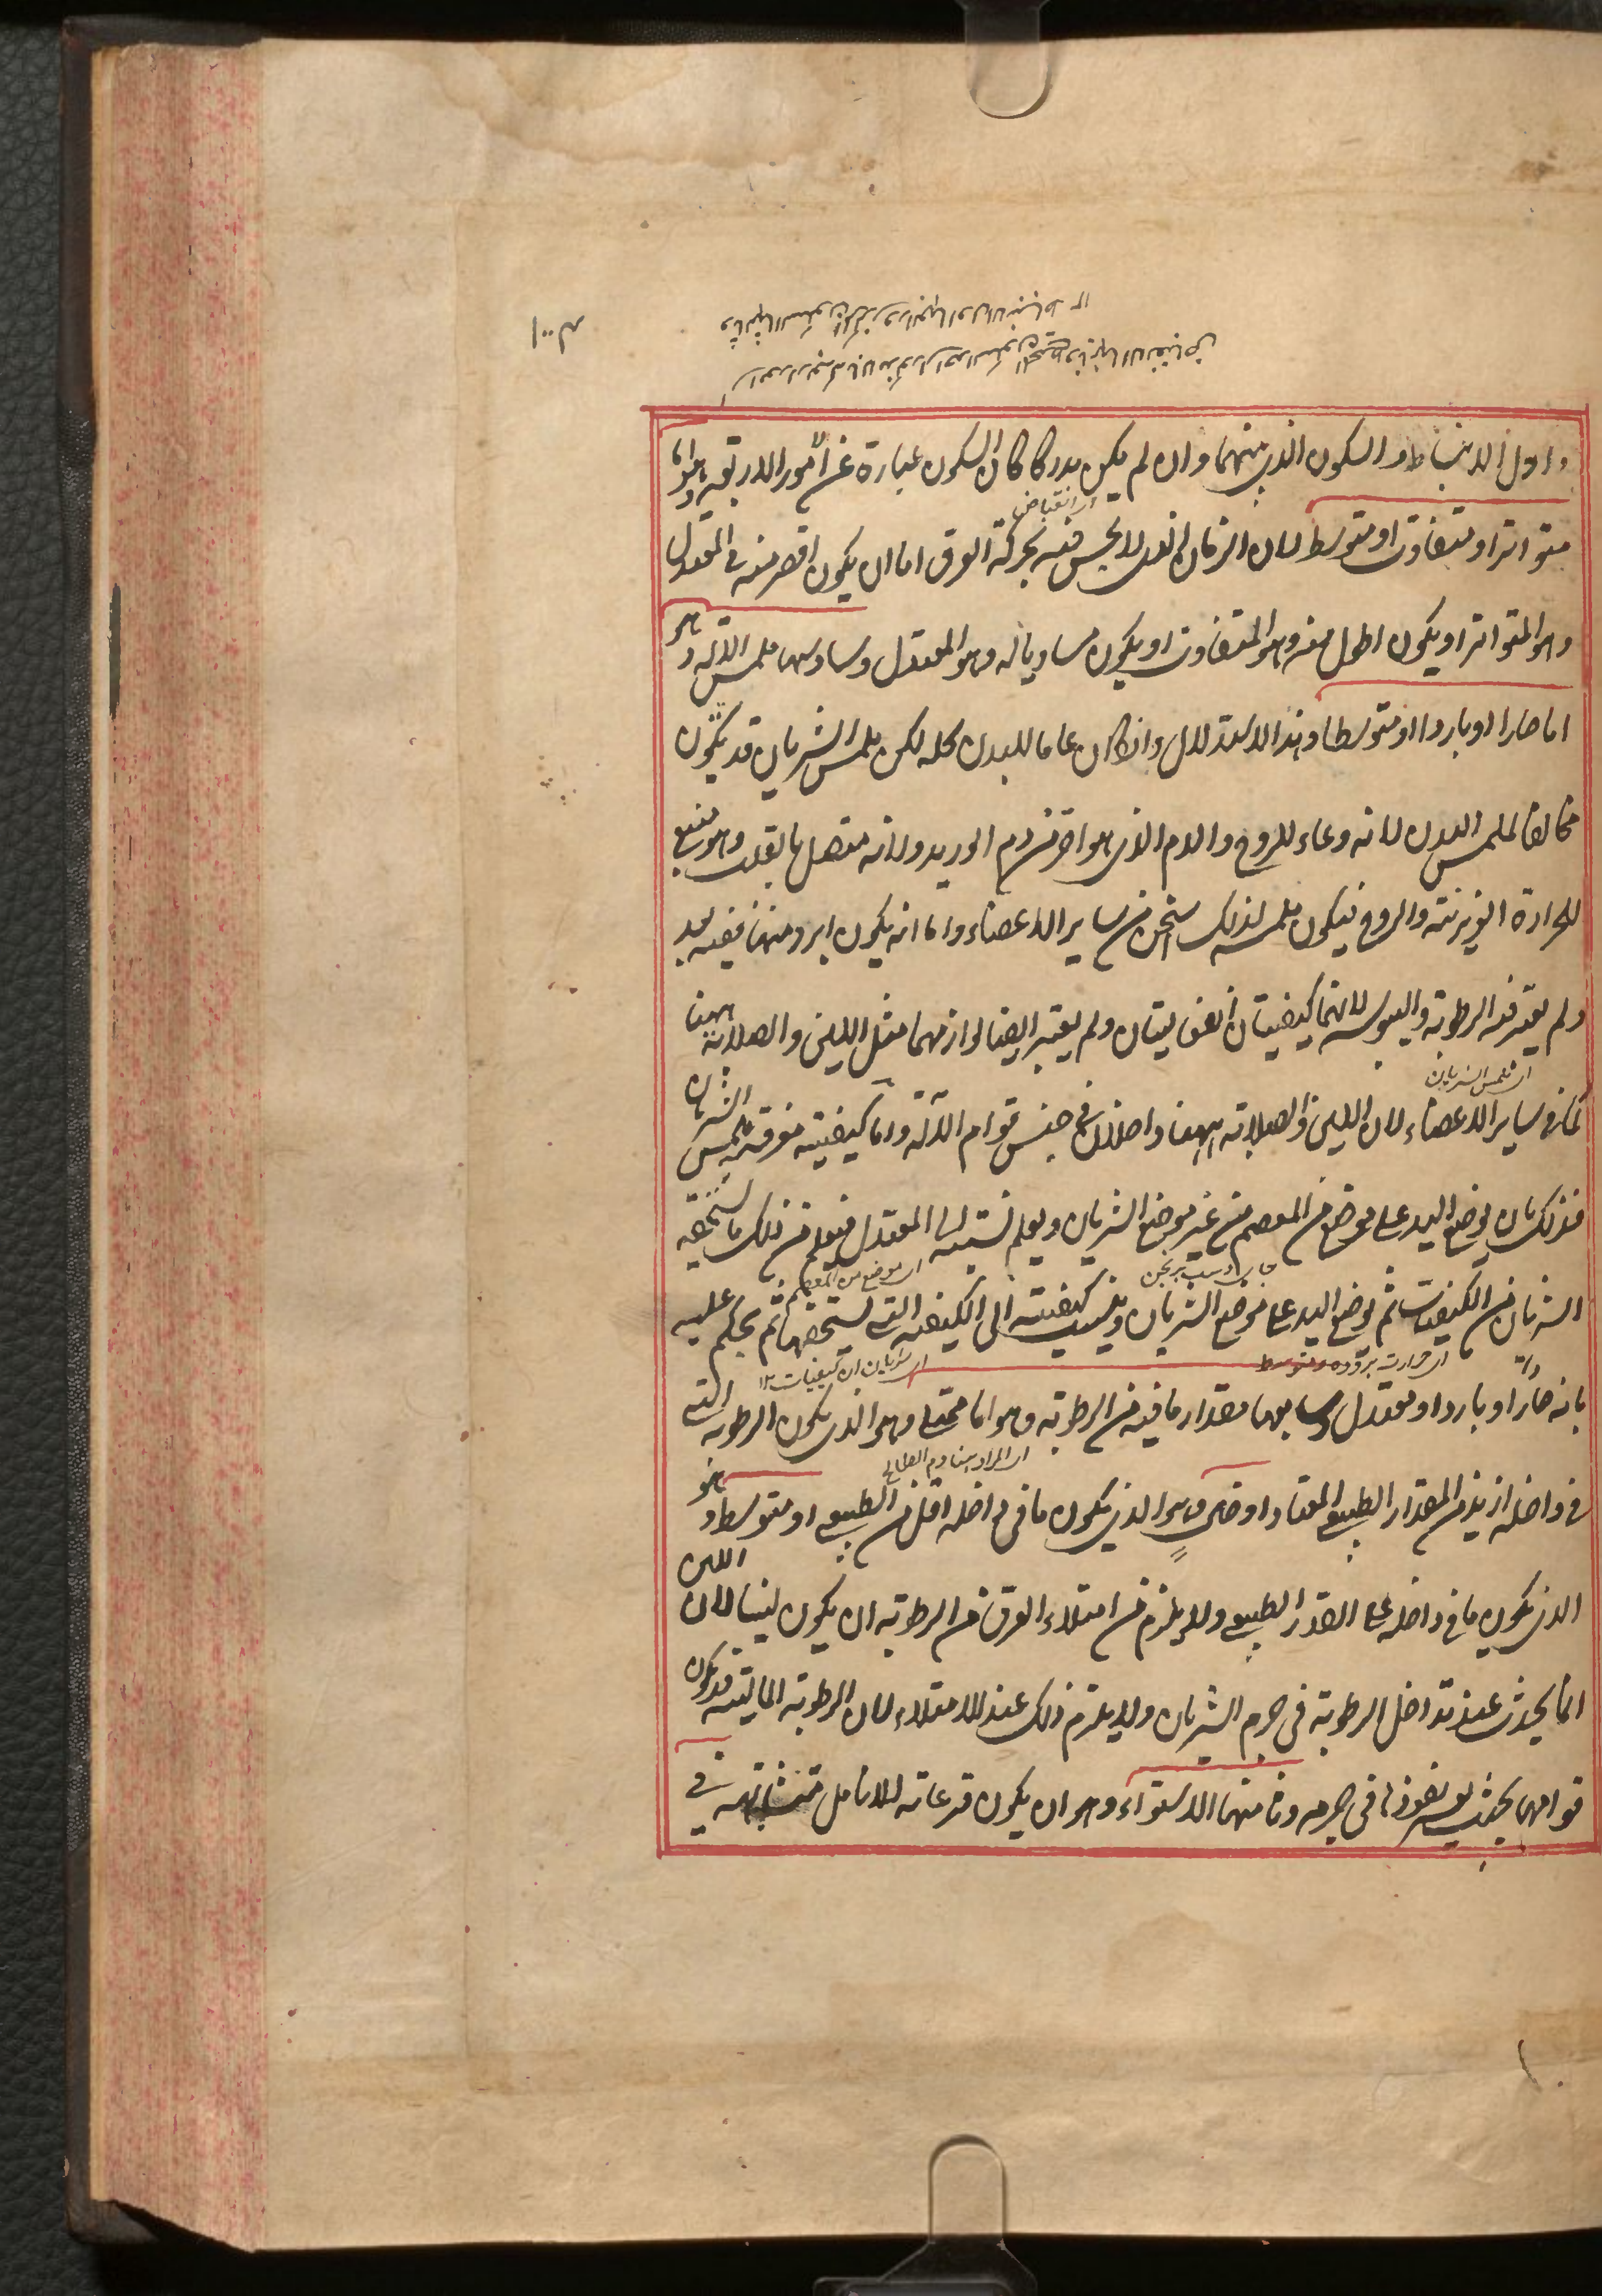 واول الانبساط والسكون الذي بينهما وان لم يكن مدركا كان السكون عبارة عن الامور الاربعة وهو اما
اي انقباض
متواترا او متفاوت او متوسط لان الزمان الذي لا يحس فيه بحركة العرق اما ان يكون اقصر منه في المعتدل
وهو المتواتر او يكون اطول منه وهو المتفاوت او يكون مساويا له وهو المعتدل وسادسها ملمس الآلة وهو
اما حارا او باردا او متوسطا وهذا الاستدلال وان كان عاما للبدن كله لكن ملمس الشريان قد يكون
مخالفا لملمس البدن لانه وعاء للروح والدم الذي هو احر من دم الوريد ولانه متصل بالقلب وهو منبع
للحرارة الغريزية والروح فيكون ملمسه لذلك اسخن من ساير الاعضاء واما انه يكون ابرد منها ففيه بعد
ولم يعتبر فيه الرطوبة واليبوسة لانهما كيفيتان انفعاليتان ولم يعتبر ايضا لوازمهما مثل اللين والصلابة ههنا
اي ملمس الشريان
كما في ساير الاعضاء لان اللين والصلابة ههنا داخلان في جنس قوام الآلة واما كيفية معرفة ملمس الشريان
فذلك بان يوضع اليد على موضع من المعصم من غير موضع الشريان ويعلم نسبته الى المعتدل فيعلم من ذلك ما يستحقه
اي موضع من المعصم
الشريان من الكيفيات ثم يوضع اليد على موضع الشريان وينسب كيفيته الى الكيفية التي يستحقها ثم يحكم عليه
اي حرارت برودة متوسط
اي شريان ان كيفيات ١٢
بانه حار او بارد او معتدل وسابعها مقدار ما فيه من الرطوبة وهو اما ممتلئ وهو الذي يكون الرطوبة التي
اي المراد ههنا دم
في داخله ازيد من المقدار الطبيعي المعتاد او خالي وهو الذي يكون ما في داخله اقل من الطبيعي او متوسط وهو
الذي يكون ما في داخله على القدر الطبيعي ولا يلزم من امتلاء العرق من الرطوبة ان يكون لينا لان اللين
انما يحدث عند تداخل الرطوبة في جرم الشريان ولا يلزم ذلك عند الامتلاء لان الرطوبة المالئة قد يكون
قوامها بحيث يعسر نفوذها في جرمه وثامنها الاستواء وهو ان يكون قرعاته للانامل متشابهة في